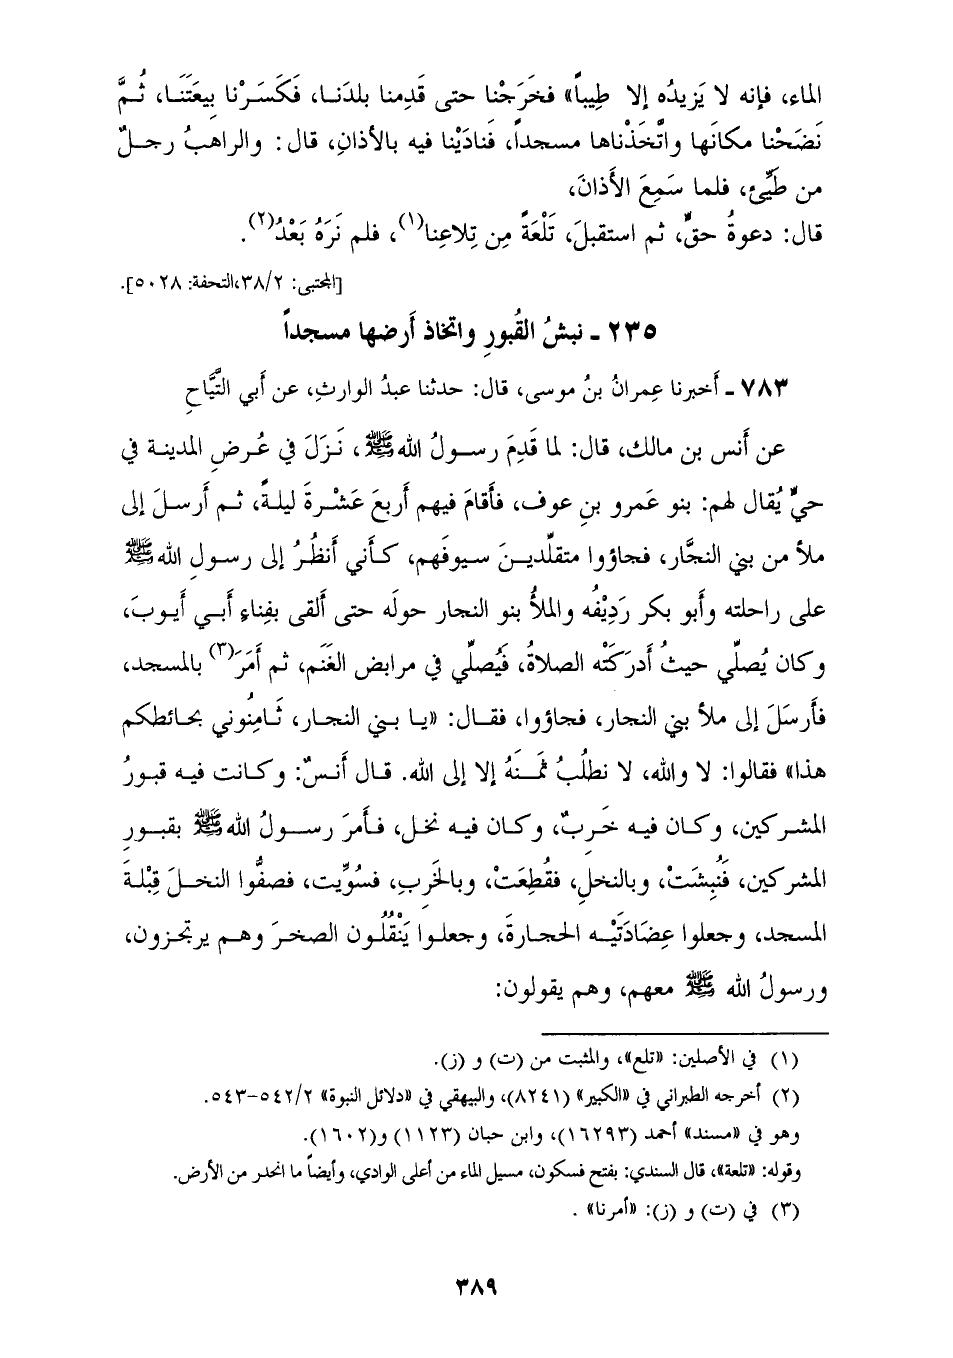 الماء، فإنه لا يَزيدُه إلا طِيباً» فخَرَجْنا حتى قَدِمنا بلدَنا، فكَسَرْنا بِيعَتَنَا، ثُمَّ
نَضَحْنا مكانَها واتَّخَذْناها مسجداً، فَنادَيْنا فيه بالأذانِ، قال: والراهبُ رجلٌ
من طَيِّئ، فلما سَمِعَ الأَذانَ،
قال: دعوةُ حقٍّ، ثم استقبلَ، تَلْعَةً مِن تِلاعِنا(١)، فلم نَرَهُ بَعْدُ(٢).
[المجتبى: ٣٨/٢، التحفة: ٥٠٢٨].
٢٣٥ ـ نبشُ القُبورِ واتخاذ أَرضها مسجداً
٧٨٣ ـ أَخبرنا عِمرانُ بنُ موسى، قال: حدثنا عبدُ الوارثِ، عن أَبي التَّيَّاحِ
عن أَنس بن مالك، قال: لما قَدِمَ رسولُ الله ﷺ، نَزَلَ في عُرضِ المدينة في
حيٍّ يُقال لهم: بنو عَمرو بنِ عوف، فأَقامَ فيهم أَربعَ عَشْرةَ ليلةً، ثم أَرسلَ إلى
ملأ من بني النجَّار، فجاؤوا متقلِّدينَ سيوفَهم، كأَني أَنظُرُ إلى رسولِ الله ﷺ
على راحلته وأَبو بكر رَدِيْفُه والملأُ بنو النجار حولَه حتى أَلقى بفِناءِ أَبي أَيوبَ،
وكان يُصلِّي حيثُ أَدركَتْه الصلاةُ، فَيُصلِّي في مرابض الغَنَم، ثم أَمَرَ(٣) بالمسجد،
فأَرسَلَ إلى ملأ بني النجار، فجاؤوا، فقال: «يا بني النجار، ثَامِنُوني بحائطكم
هذا» فقالوا: لا والله، لا نطلُبُ ثمنَهُ إلا إلى الله. قال أَنسٌ: وكانت فيه قبورُ
المشركين، وكان فيه خَرِبٌ، وكان فيه نخل، فأَمرَ رسولُ الله ﷺ بقبورِ
المشركين، فَنُبِشَتْ، وبالنخلِ، فقُطِعَتْ، وبالخَرِبِ، فسُوِّيت، فصفُّوا النخلَ قِبْلةَ
المسجد، وجعلوا عِضَادَتَيْه الحجارةَ، وجعلوا يَنْقُلُون الصخرَ وهم يرتجزون،
ورسولُ الله ﷺ معهم، وهم يقولون:
(١) في الأصلين: «تلع»، والمثبت من (ت) و (ز).
(٢) أخرجه الطبراني في «الكبير» (٨٢٤١)، والبيهقي في «دلائل النبوة» ٥٤٢/٢-٥٤٣.
وهو في «مسند» أحمد (١٦٢٩٣)، وابن حبان (١١٢٣) و(١٦٠٢).
وقوله: «تلعة»، قال السندي: بفتح فسكون، مسيل الماء من أعلى الوادي، وأيضاً ما انحدر من الأرض.
(٣) في (ت) و (ز): «أمرنا» .
٣٨٩